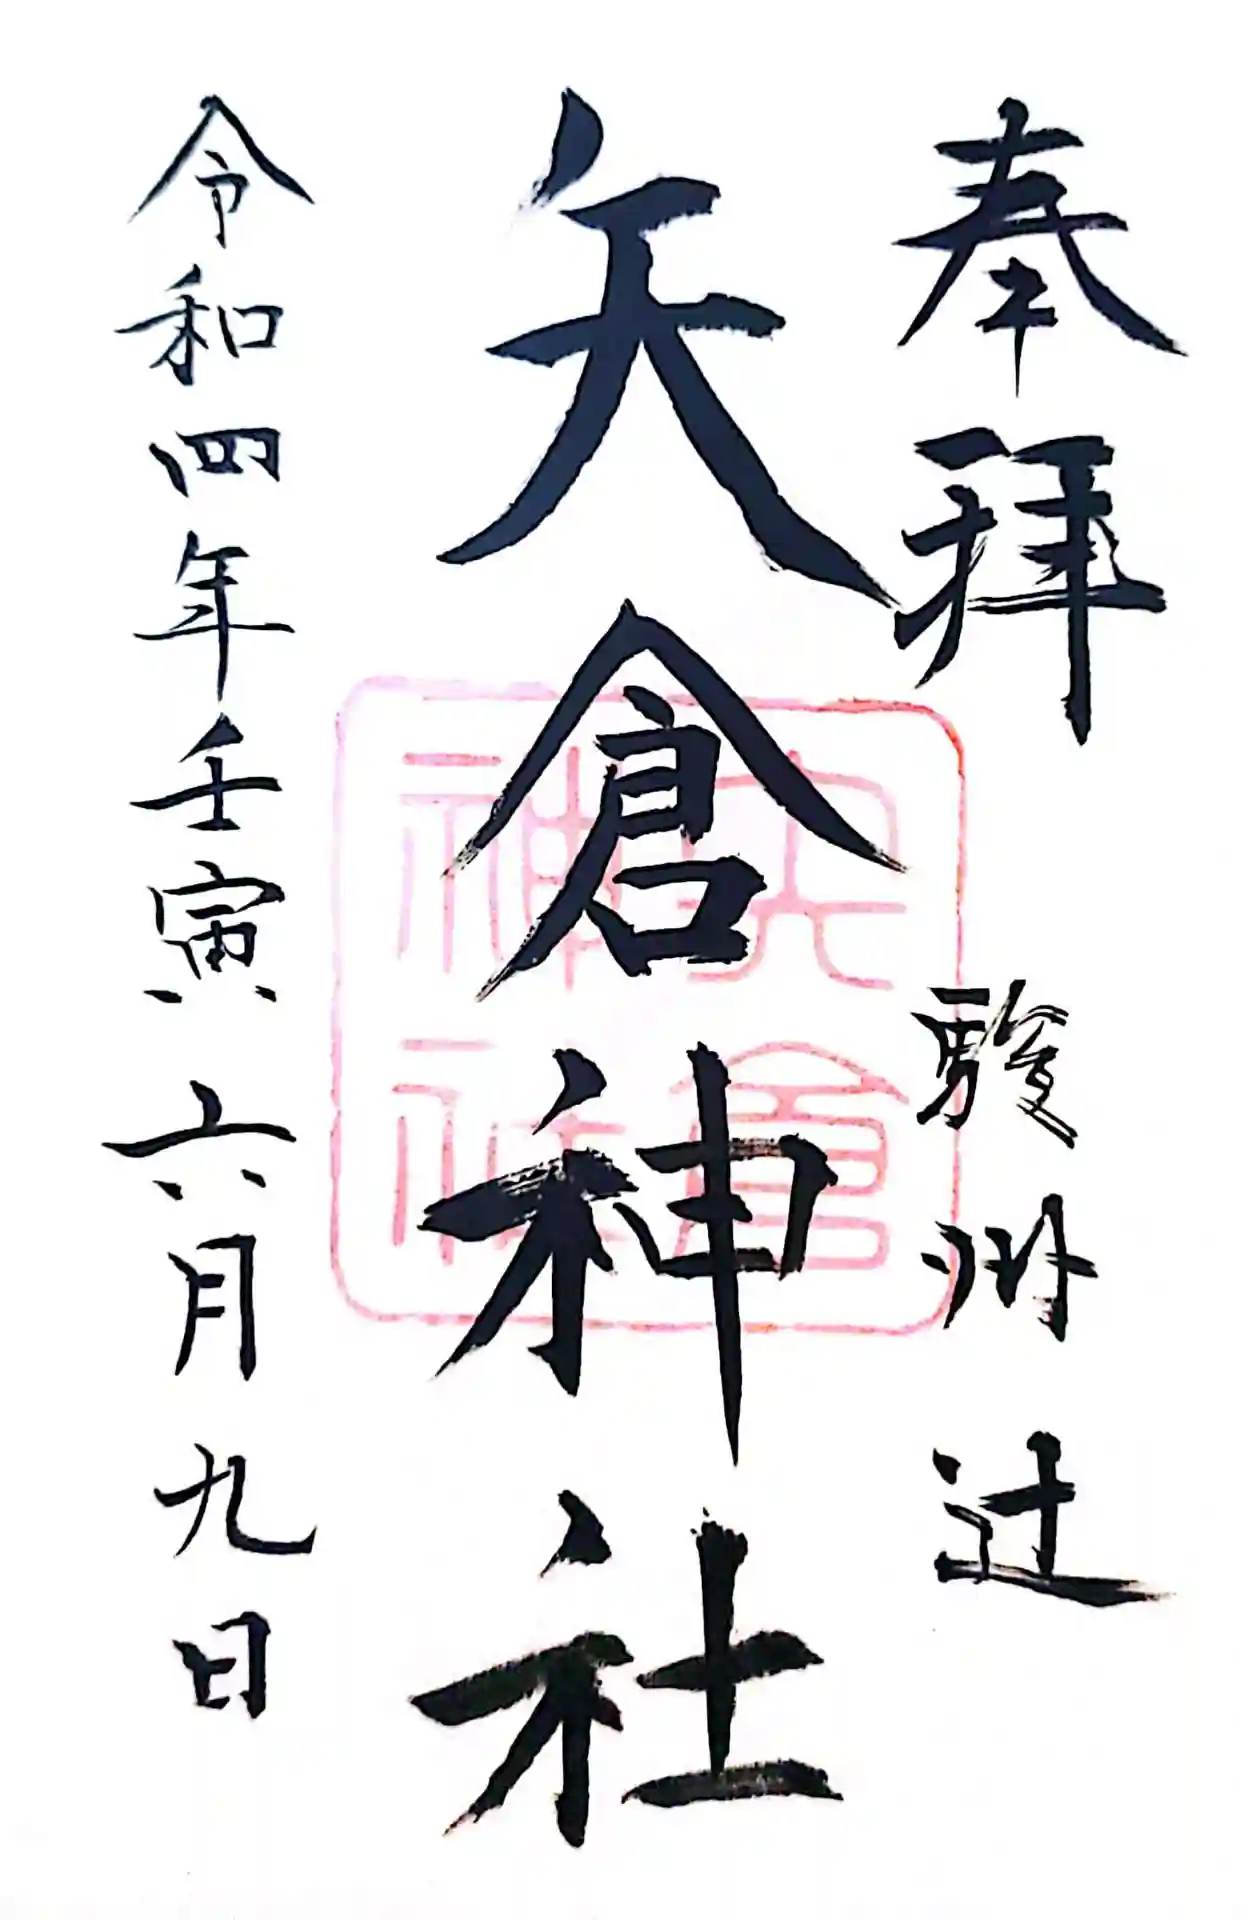 奉拝 駿州辻
矢倉神社
矢倉
神社
令和四年壬寅六月九日